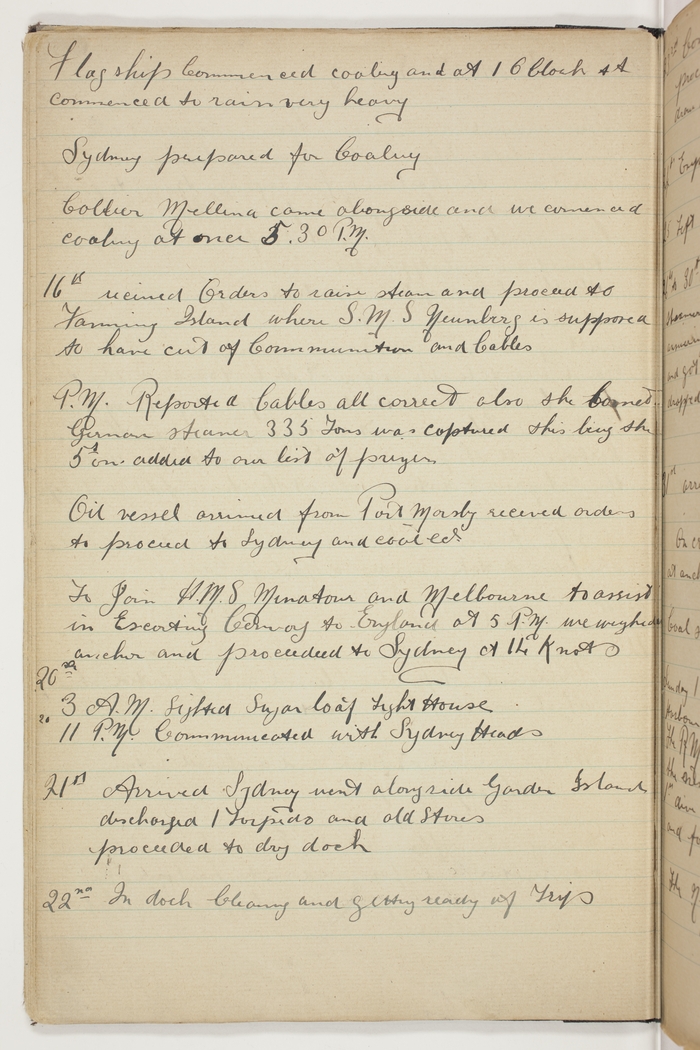 Flag ship Commenced coaling and at 1 O Clock it
commenced to rain very heavy
Sydney prepared for Coaling
Collier Mellina came alongside and we comenced
coaling at once 5.30 P.M.
16th recieved Orders to raise steam and proceed to
Fanning Island where S.M.S Neunberg is supposed
to have cut of Communition and Cables
P.M. Reported Cables all correct also she
German steamer 335 Tons was captured this being the
5th on added to our list of
Oil vessel arrived from Port Morsby received orders
to proceed to Sydney and
To Join H.M.S Minatour and Melbourne to assist
in Escorting Convoy to England at 5 P.M. we weighed
anchor and proceeded to Sydney at 14 Knots
20th
3 A.M. Sighted Sugar loaf Light House
20 11 P.M. Communicated with Sydney Heads
21st Arrived Sydney went alongside Garden Island
discharged 1 Torpedo and old Stores
proceeded to dry dock
22nd In dock Cleaning and getting ready of Trip